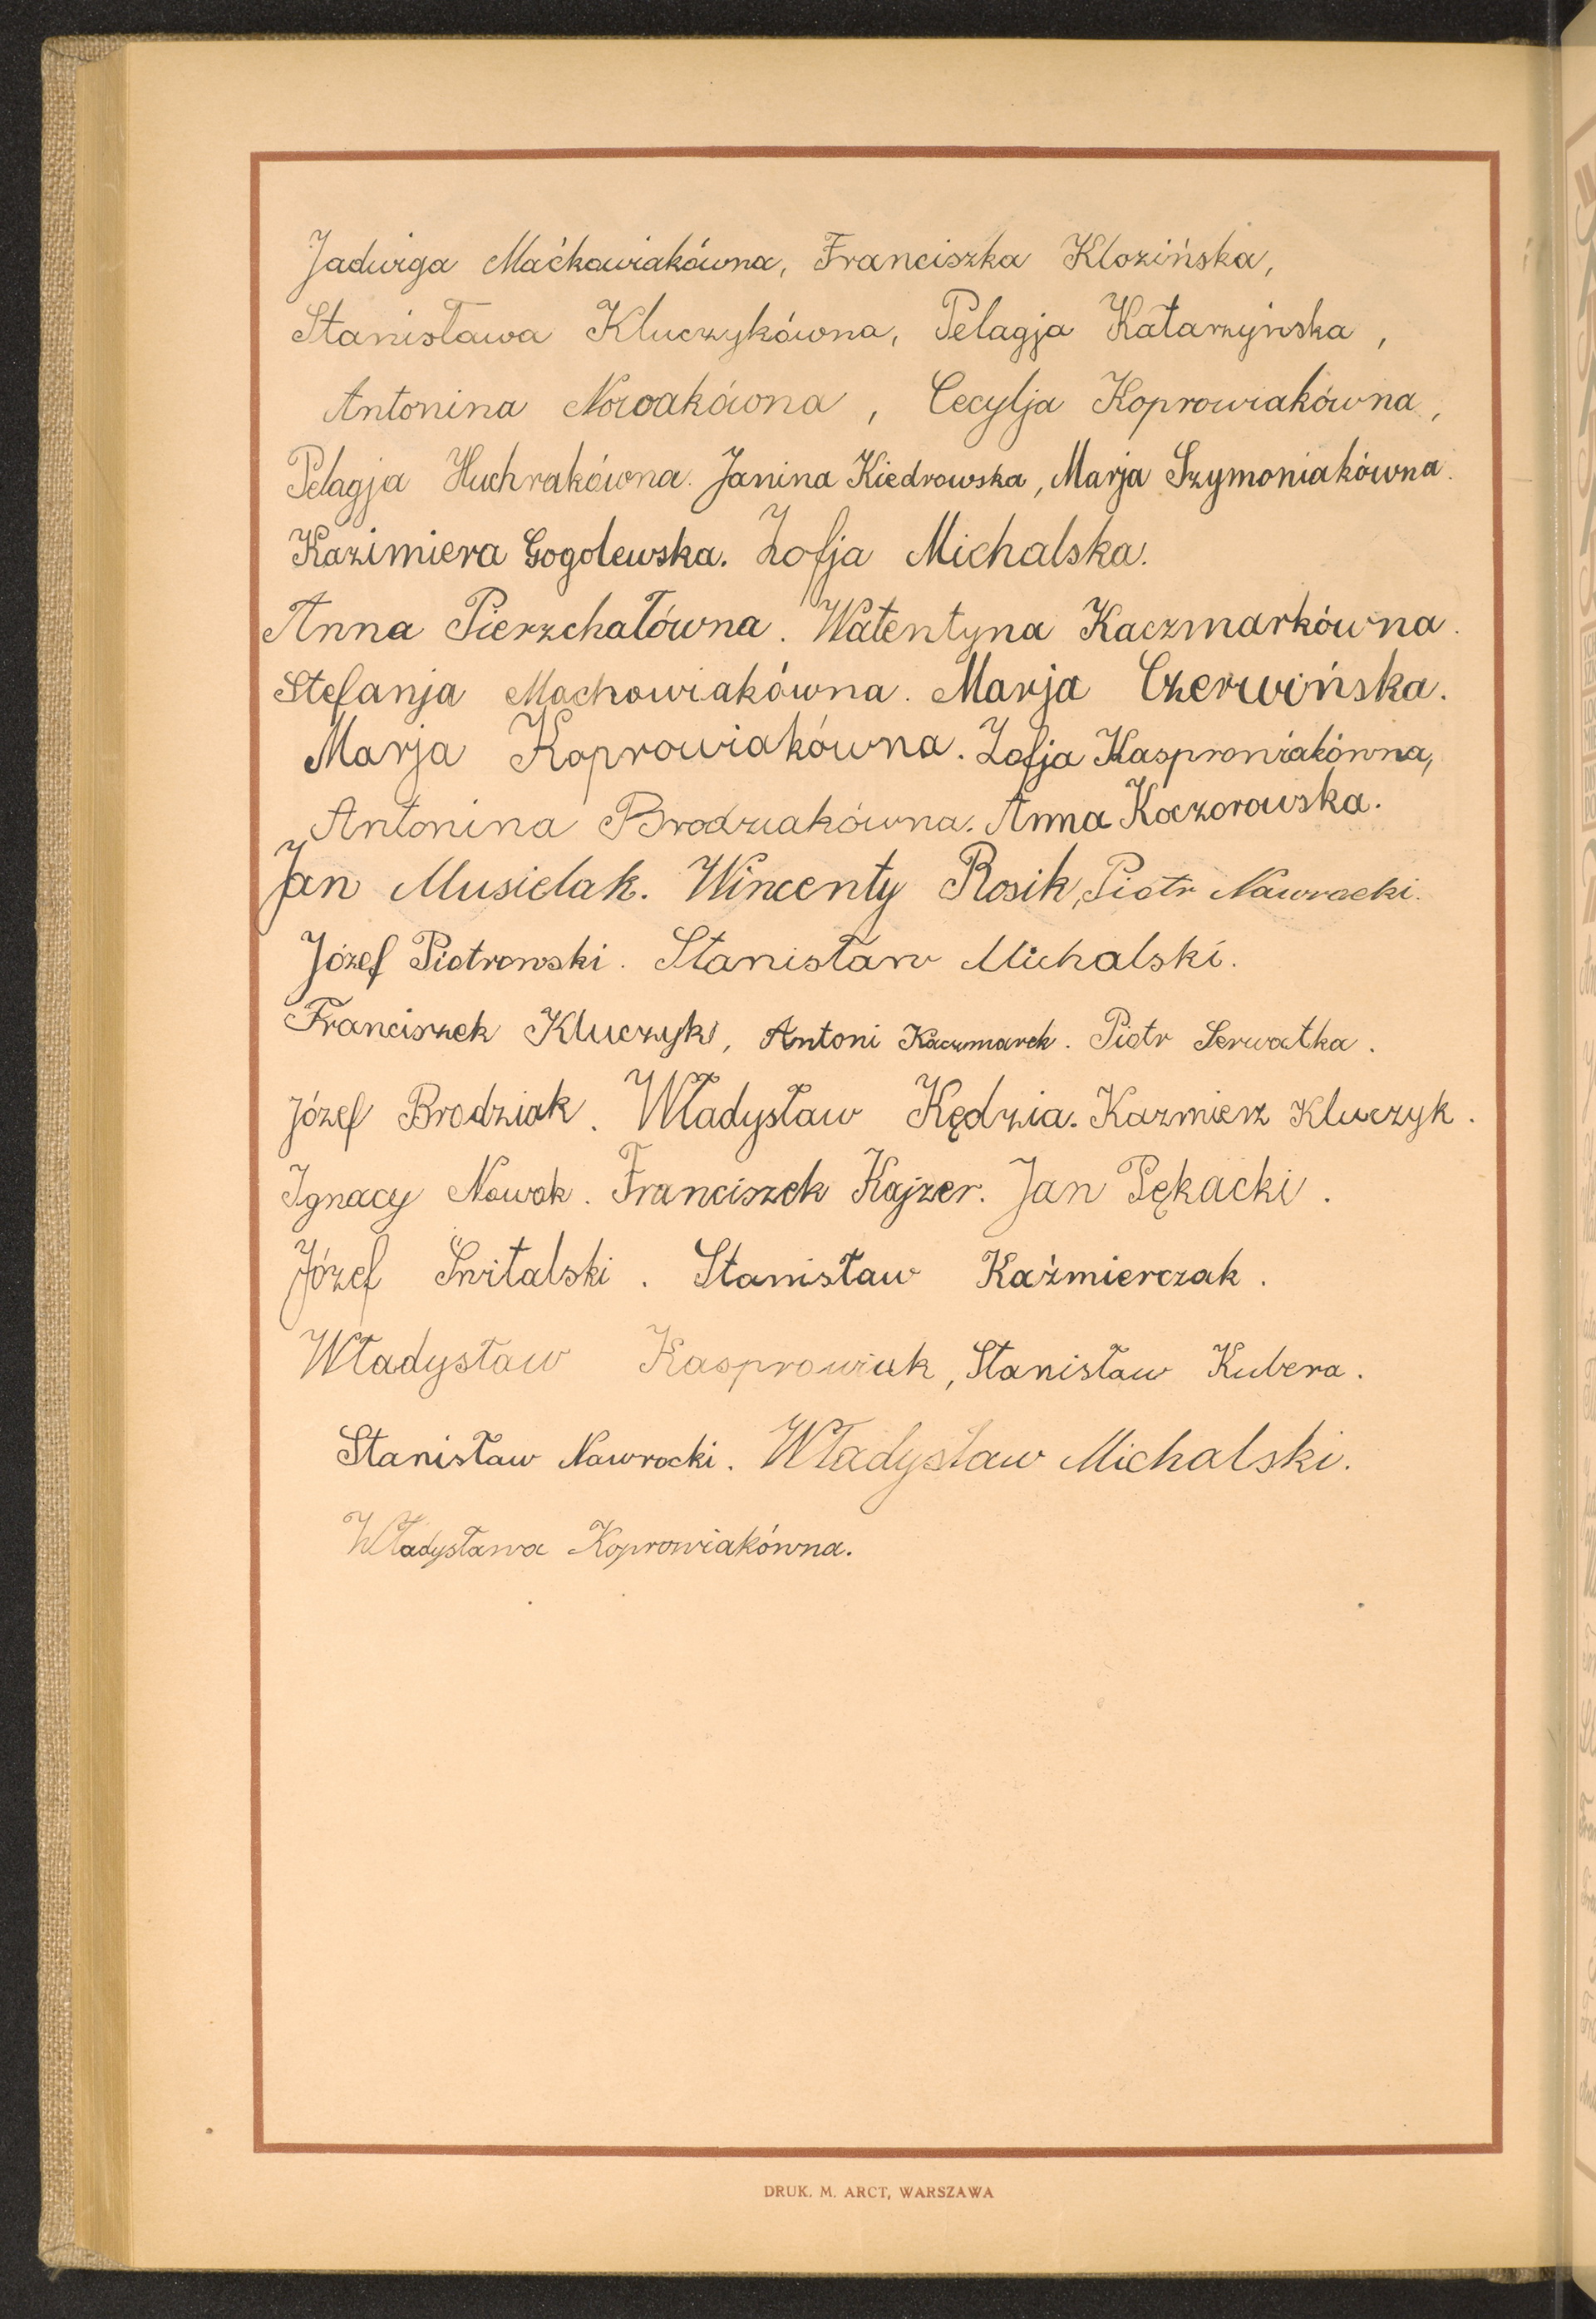 Jadwiga Maćkowiakówna, Franciszka Klozińska,
Stanisława Kluczykówna, Pelagja Katarzyńska,
Antonina Nowakówna, Cecylja Koprowiakówna,
Pelagja Huchrakówna. Janina Kiedrowska, Marja Szymoniakówna.
Kazimiera Gogolewska. Zofja Michalska.
Anna Pierzchałówna. Walentyna Kaczmarkówna.
Stefanja Machowiakówna. Marja Czerwińska.
Marja Koprowiakówna. Zofja Kasprowiakówna,
Antonina Brodziakówna. Anna Koczorowska.
Jan Musielak. Wincenty Rosik, Piotr Nawrocki.
Józef Piotrowski. Stanisław Michalski.
Franciszek Kluczyk, Antoni Kaczmarek. Piotr Serwatka.
Józef Brodziak. Władysław Kędzia. Kazmierz Kluczyk.
Ignacy Nowak. Franciszek Kajzer. Jan Pękacki.
Józef Świtalski. Stanisław Kaźmierczak.
Władysław Kasprowiak, Stanisław Kubera.
Stanisław Nawrocki. Władysław Michalski.
Władysława Koprowiakówna.
DRUK. M. ARCT, WARSZAWA